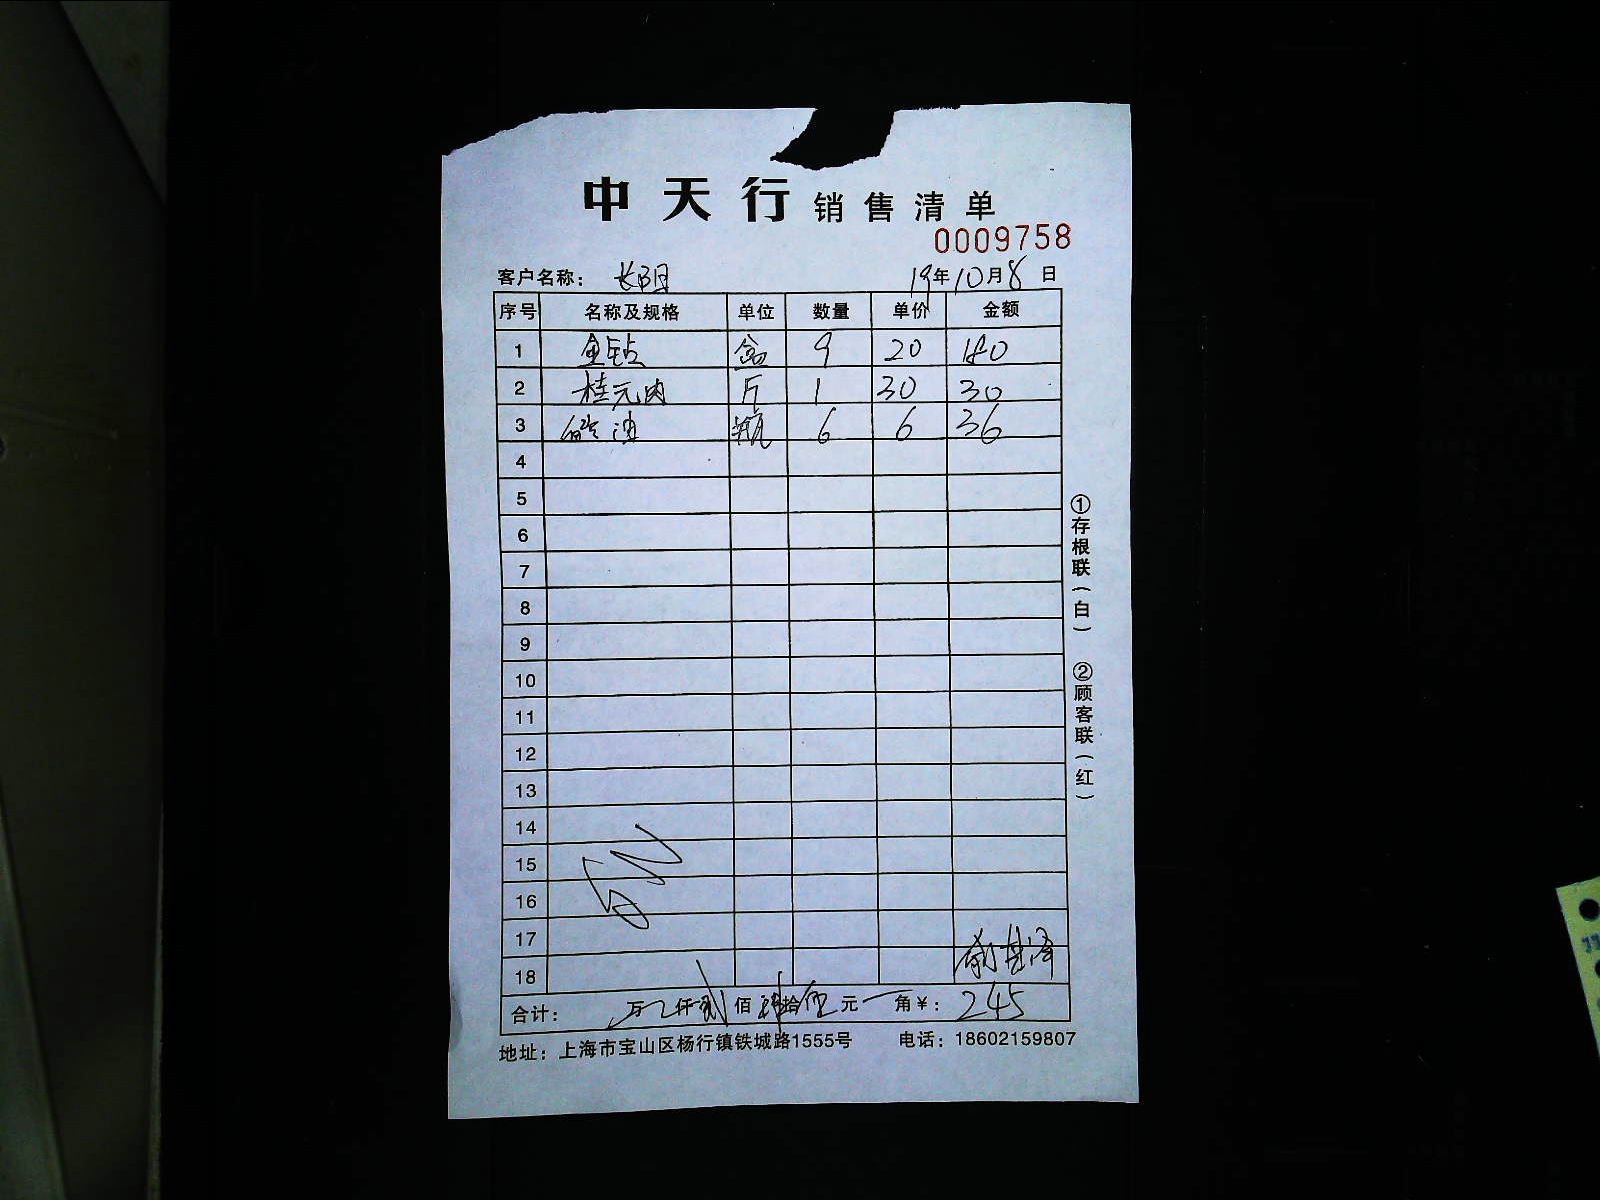 中天行 销售清单
0009758
客户名称： 长阳 19年10月8日
序号 名称及规格 单位 数量 单价 金额
1 金钻 盒 9 20 180
2 桂元肉 斤 1 30 30
3 油 瓶 6 6 36
4
5
6
7
8
9
10
11
12
13
14
15
16
17
18
合计： 万 仟贰佰肆拾伍元 角￥： 245
地址：上海市宝山区杨行镇铁城路1555号 电话：18602159807
①存根联(白) ②顾客联(红)